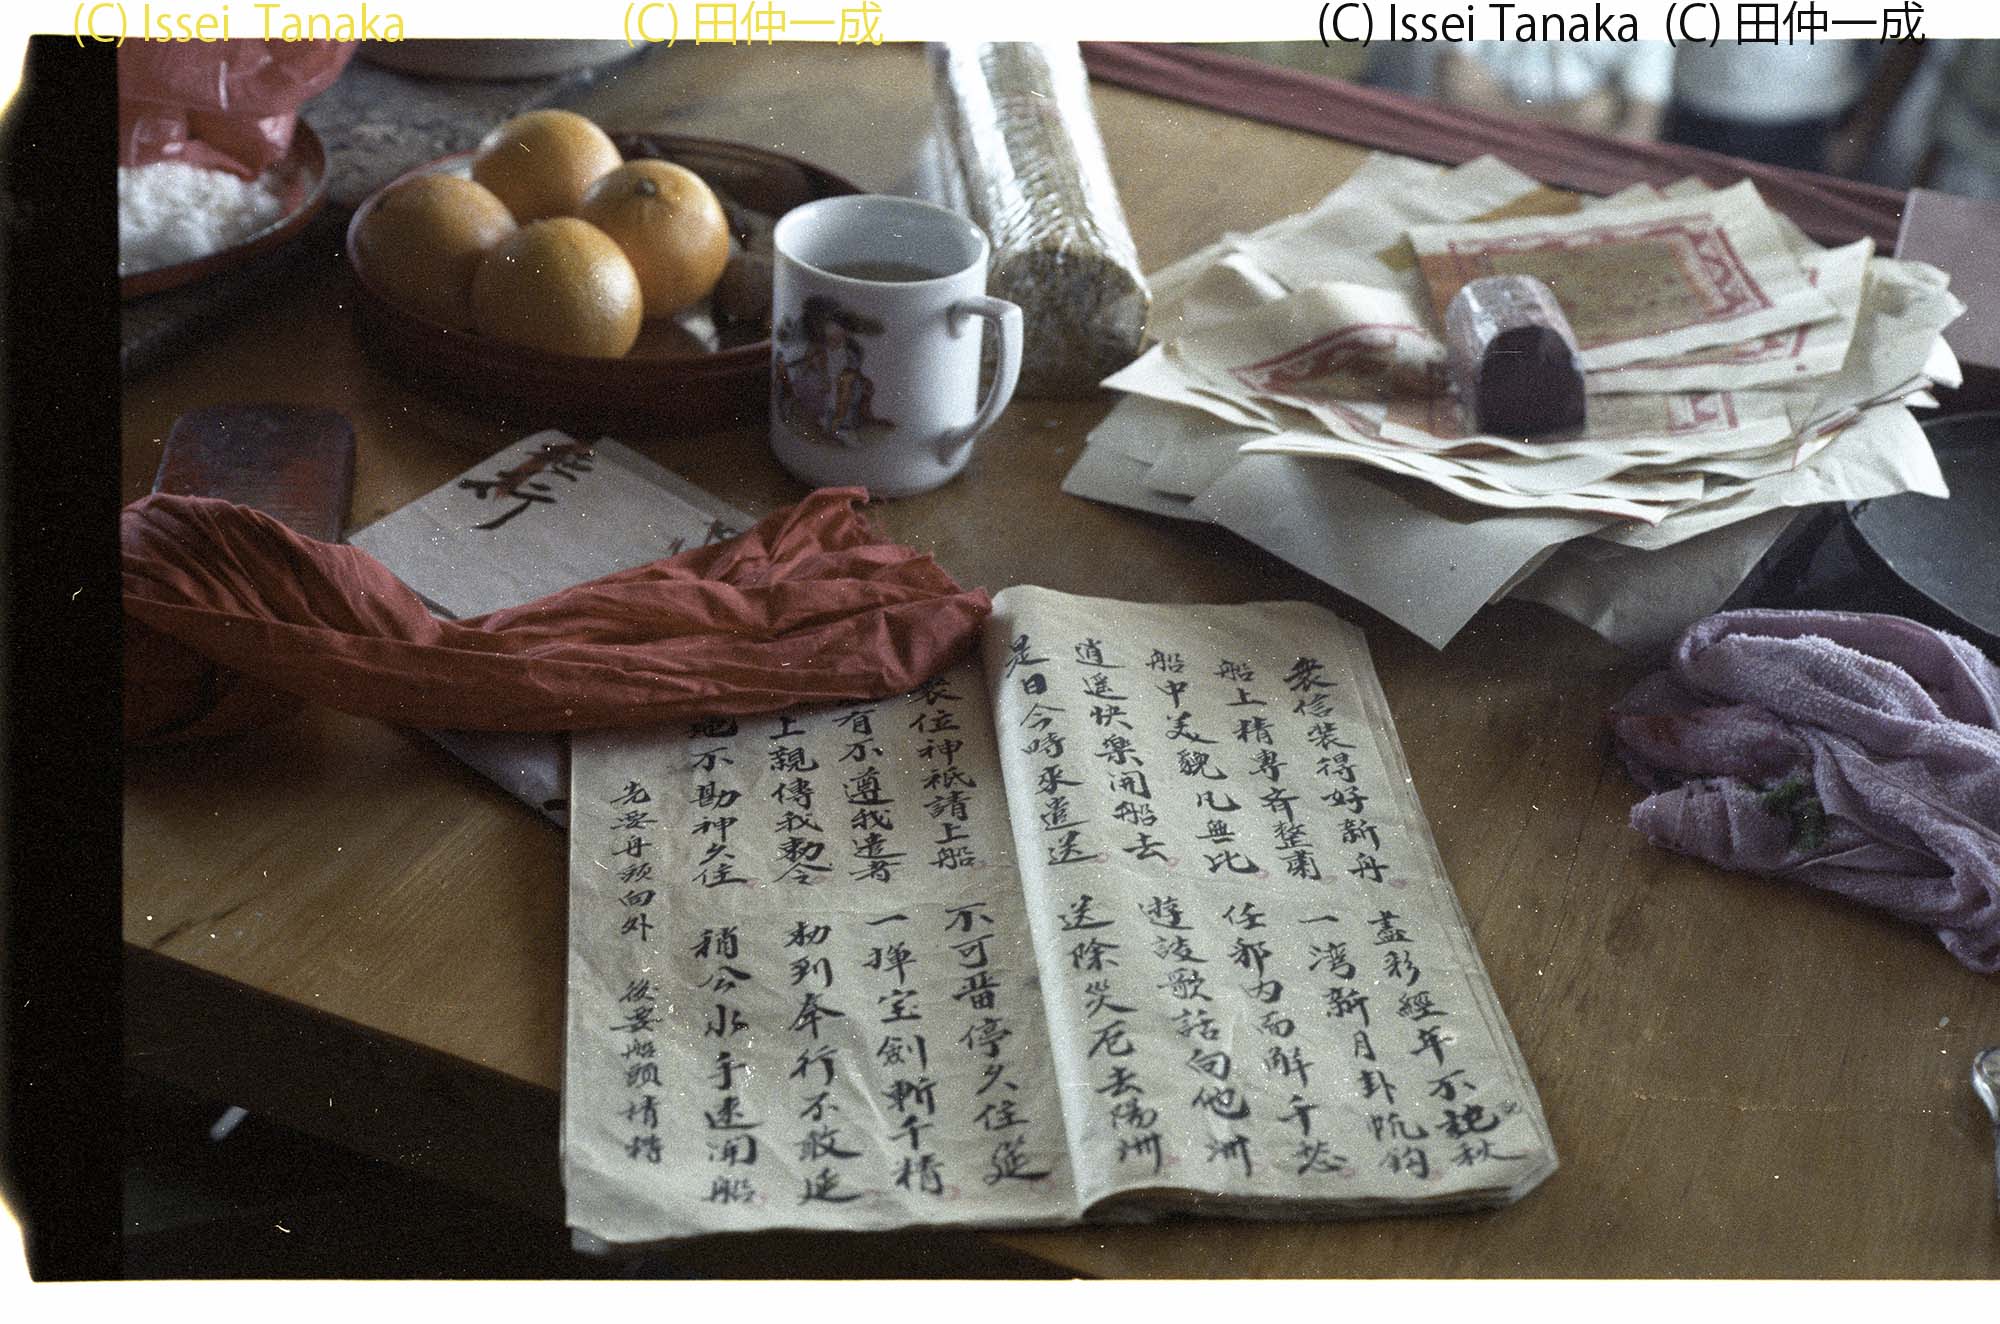 (C) Issei Tanaka (C) 田仲一成
(C) Issei Tanaka (C) 田仲一成
奉行
衆信裝得好新舟 盡彩經年不 秋
船上精專齊整肅 一湾新月卦帆鈎
船中美貌凡無比 任邪内而解千愁
逍遥快樂開船去 遊 歌話向他洲
是日今時來遣送 送除災厄去陽洲
衆位神祇請上船 不可畱停久住延
有不遵我遣者 一揮宝劍斬千精
上親傳我勅令 勅到奉行不敢延
不勘神久住 稍公水手速開船
先要舟頭向外 後要船頭